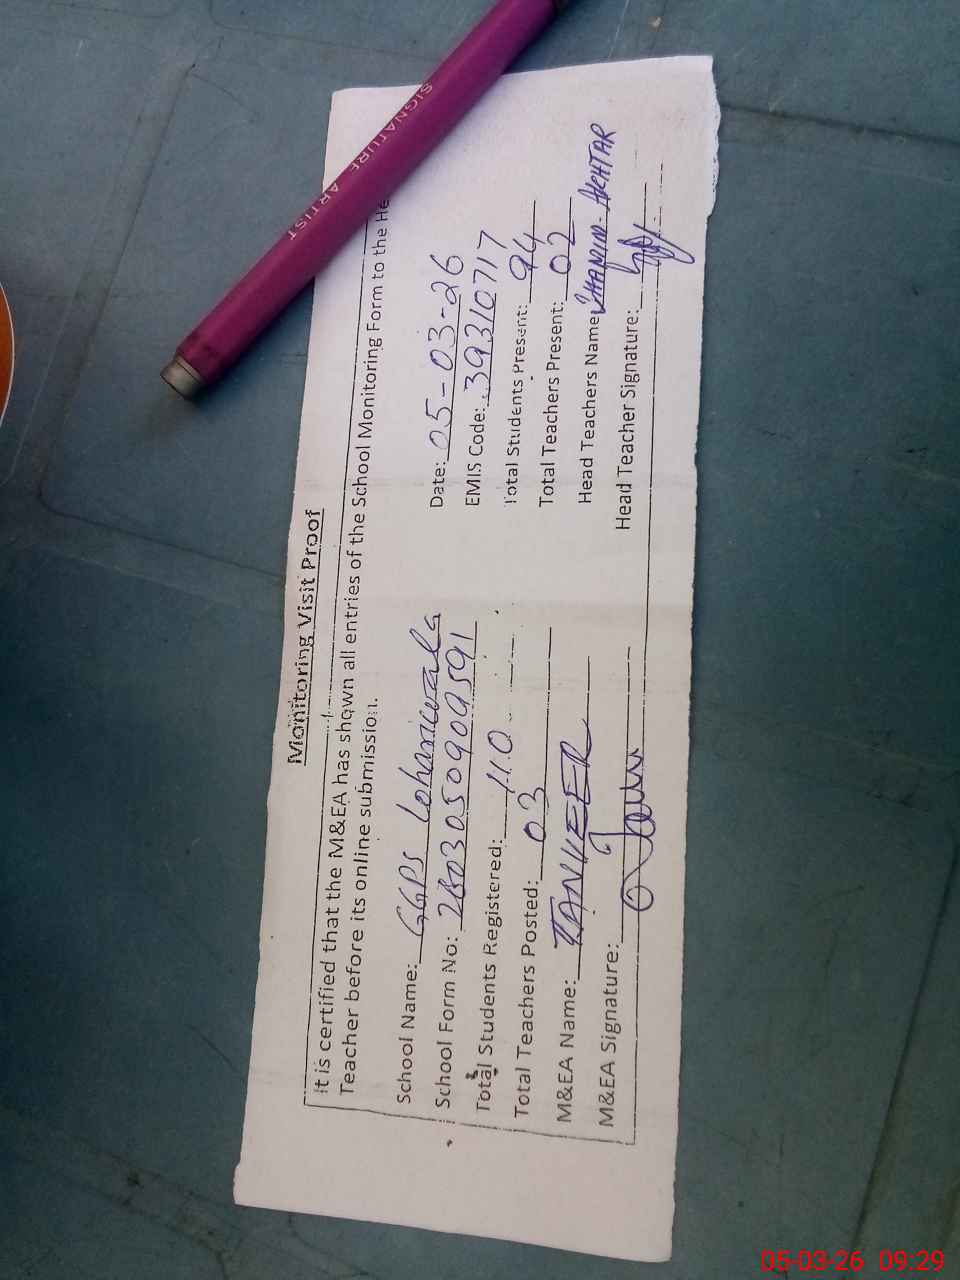 SIGNATURE ARTIST
Monitoring Visit Proof
It is certified that the M&EA has shown all entries of the School Monitoring Form to the He
Teacher before its online submission.
School Name: GGPS Lohariwala
Date: 05-03-26
School Form No: 2603050909591
EMIS Code: 39310717
Total Students Registered: 110
Total Students Present: 94
Total Teachers Posted: 03
Total Teachers Present: 02
M&EA Name: TANVEER
Head Teachers Name: SHAMIM AKHTAR
M&EA Signature:
Head Teacher Signature:
05-03-26 09:29